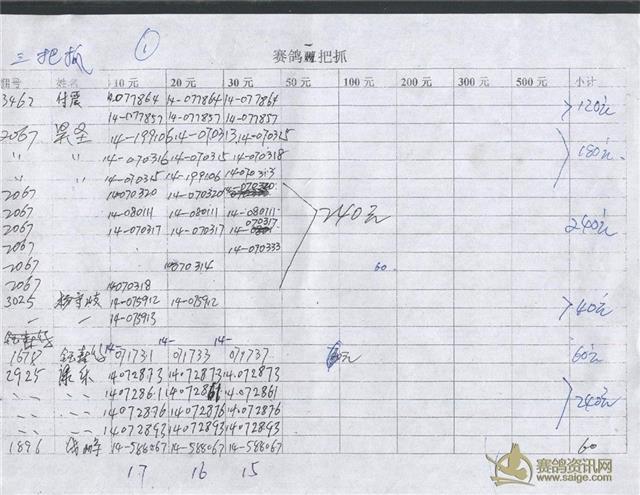 三把抓 ① 赛鸽 把抓
姓名 10元 20元 30元 50元 100元 200元 300元 500元 小计
3462 付震 14-077864 14-077864 14-077864
14-077857 14-077857 14-077857 >120元
2067 14-199106 14-070313 14-070325
〃 〃 14-070316 14-070315 14-070318 180元
〃 14-070315 14-199106 14-070313
2067 14-070320 14-070320
2067 14-080111 14-080111 14-080111 240元
2067 14-070317 14-070317 070317 240元
2067 14-070333
2067 14070314 60
2067 14070318
3025 14-075912 14-075912 >40元
14-075913
14- 14- 14-
1678 071731 071733 071737 元 60元
2925 14072873 14072873 14072873
14072861 14072861 14.072861 240元
14072876 14072876 14.072876
14072893 14072893 14.072893
1896 14-588067 14-588067 14-588067 60
17 16 15
赛鸽资讯网
www.saige.com